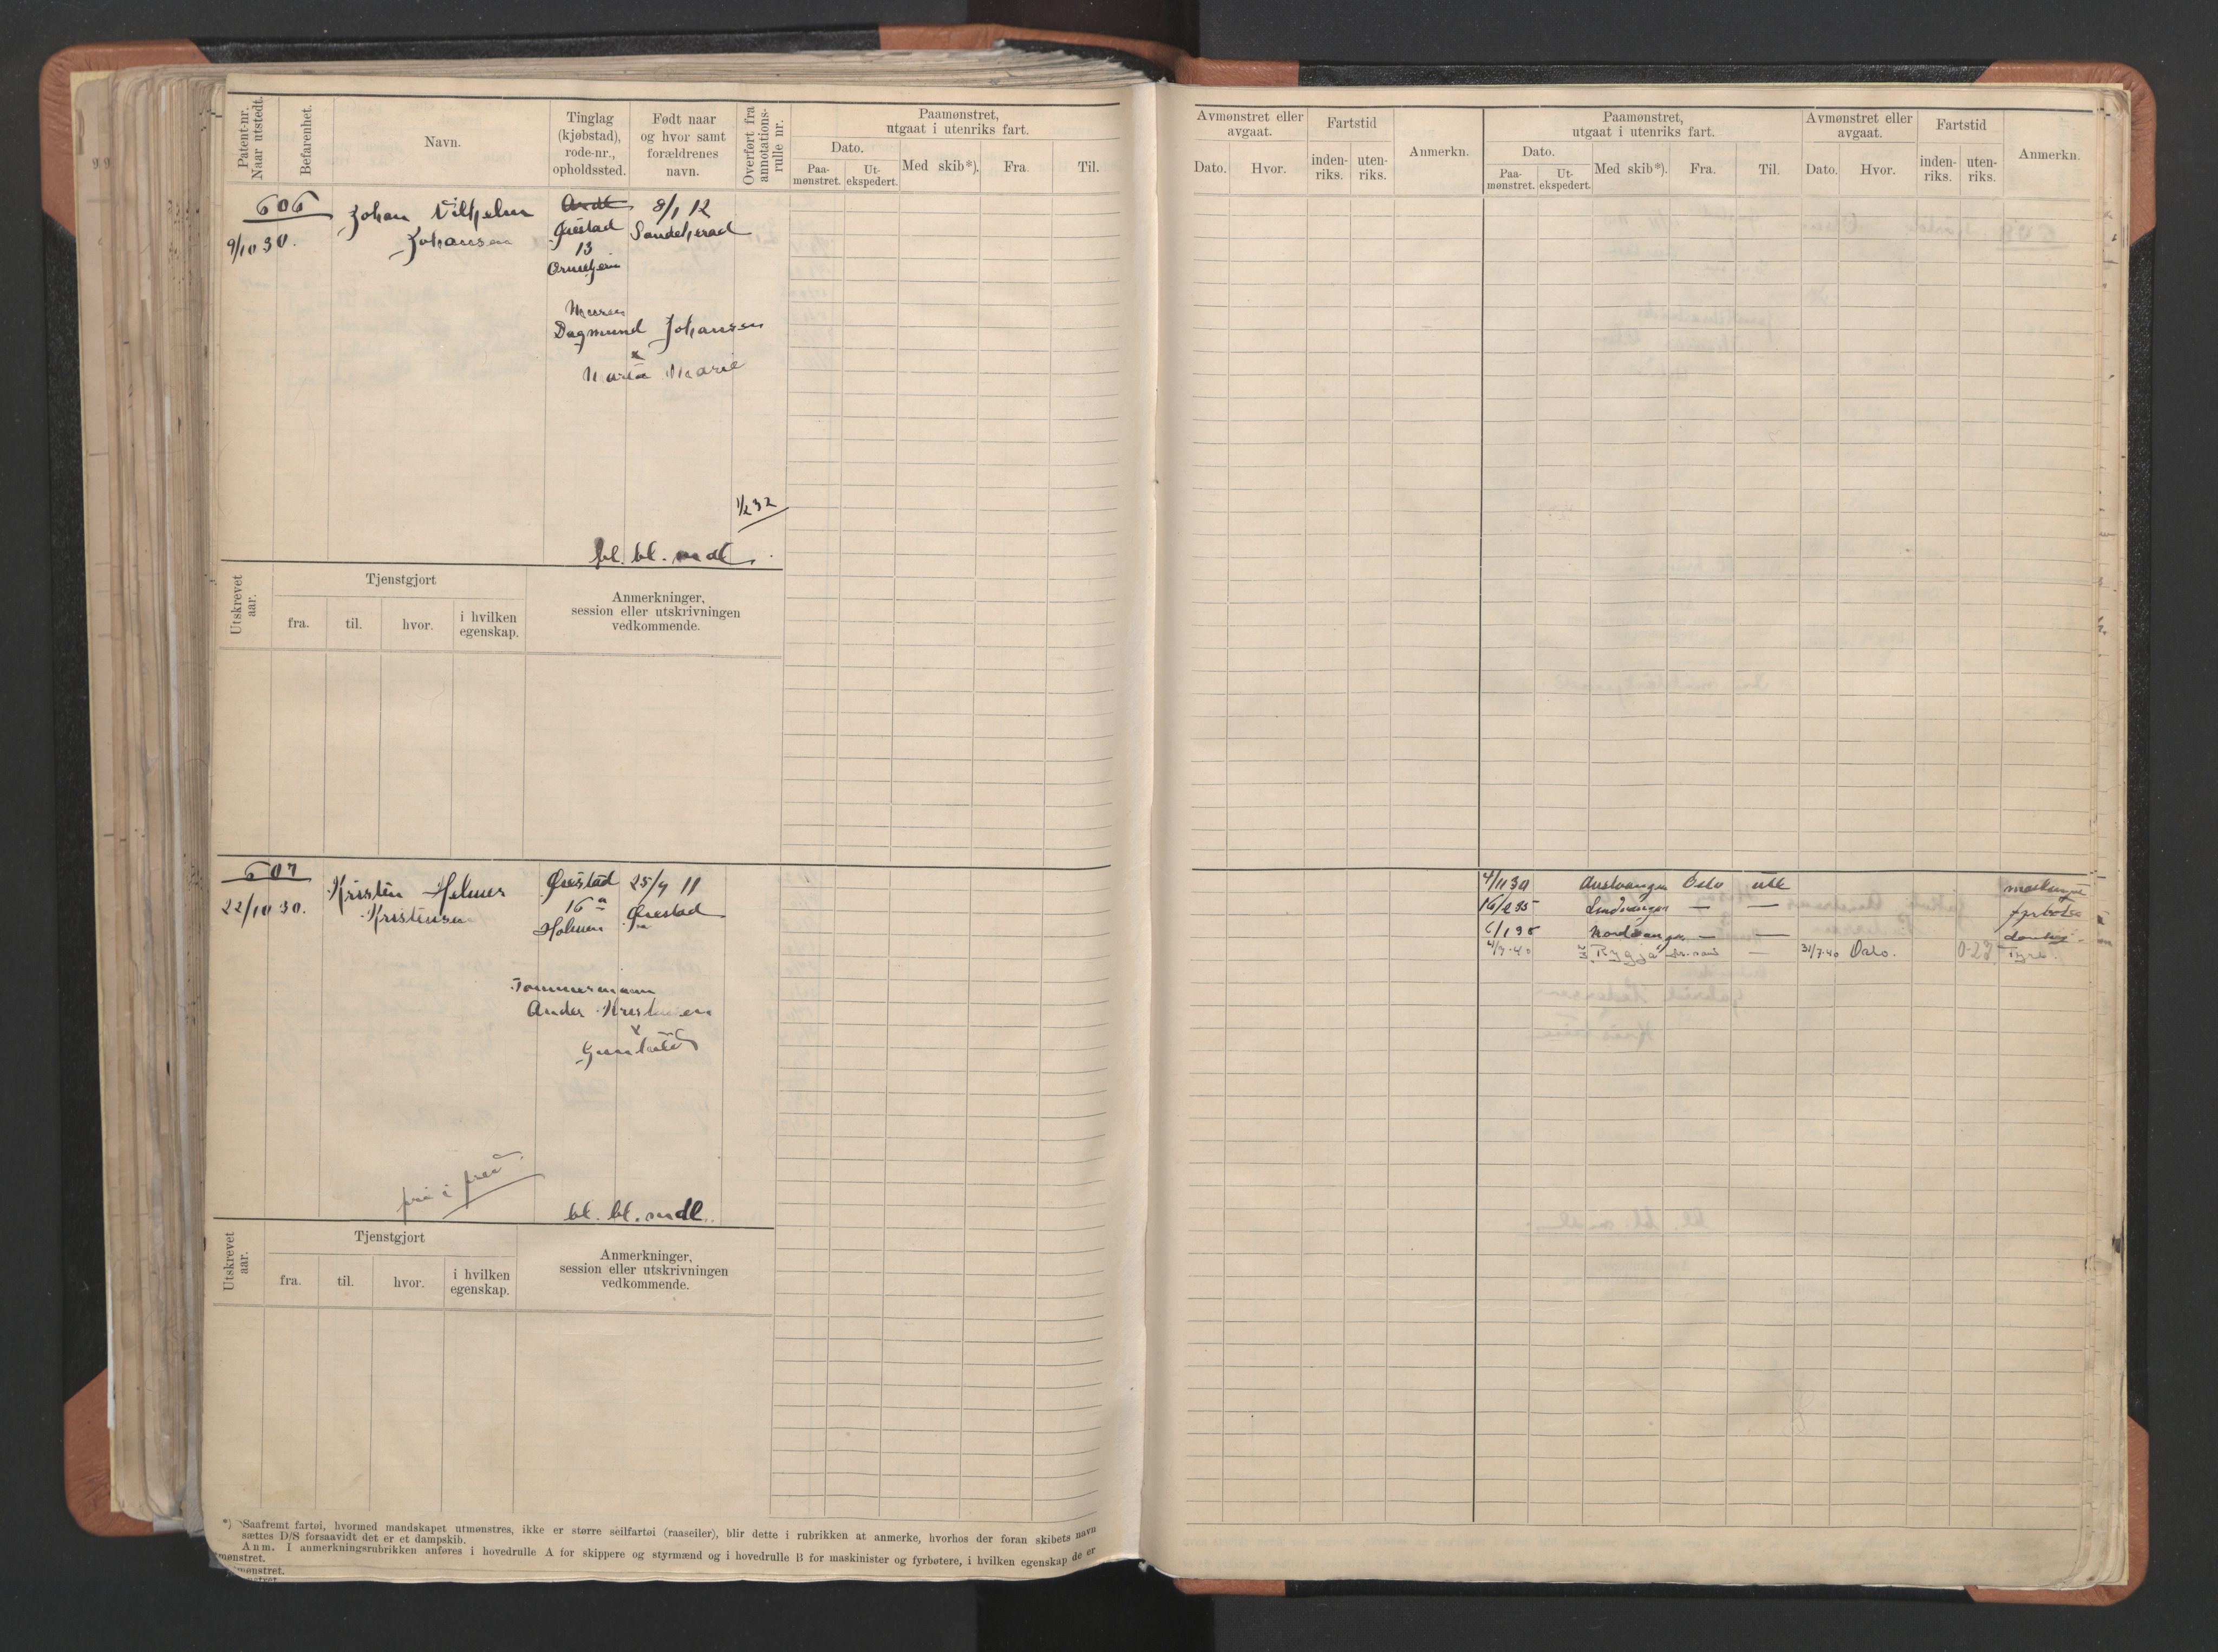 Patent-nr. Naar utstedt.
Befarenhet.
Navn.
Tinglag (kjøbstad), rode-nr., opholdssted.
Født naar og hvor samt forældrenes navn.
Overført fra annotations-rulle nr.
Paamønstret, utgaat i utenriks fart.
Dato.
Paa-mønstret.
Ut-ekspedert.
Med skib*).
Fra.
Til.
606
9/10 30.
Johan Vilhelm
Johansen
Øiestad
13
8/1 12
Sandeherad
Dagmund Johansen
Maria Marie
1/2 32
bl. bl. mdl.
Utskrevet aar.
Tjenstgjort
fra.
til.
hvor.
i hvilken egenskap.
Anmerkninger, session eller utskrivningen vedkommende.
607
22/10 30.
Kristen Helmer
Kristensen
Øiestad
16 a
Holmen
25/9 11
Øiestad
Tømmermann
Anders Kristensen
bl. bl. mdl.
Utskrevet aar.
Tjenstgjort
fra.
til.
hvor.
i hvilken egenskap.
Anmerkninger, session eller utskrivningen vedkommende.
*) Saafremt fartøi, hvormed mandskapet utmønstres, ikke er større seilfartøi (raaseiler), blir dette i rubrikken at anmerke, hvorhos der foran skibets navn
sættes D/S forsaavidt det er et dampskib.
Anm. I anmerkningsrubrikken anføres i hovedrulle A for skippere og styrmænd og i hovedrulle B for maskinister og fyrbøtere, i hvilken egenskap de er
mønstret.
Avmønstret eller avgaat.
Dato.
Hvor.
Fartstid
inden-riks.
uten-riks.
Anmerkn.
Paamønstret, utgaat i utenriks fart.
Dato.
Paa-mønstret.
Ut-ekspedert.
Med skib*).
Fra.
Til.
Avmønstret eller avgaat.
Dato.
Hvor.
Fartstid
inden-riks.
uten-riks.
Anmerkn.
4/11 30 Austvangen Oslo utl
16/2 35 Lindvangen — —
Nordvangen — —
4/7-40 Rygja — 31/7-40 Oslo. 0-28